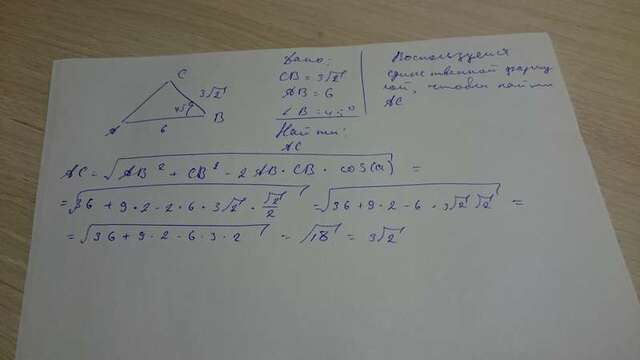 C
3√2
45°
A
6
B
Дано:
CB = 3√2
AB = 6
∠B = 45°
Найти:
AC
Воспользуемся
единственной форму
лой, чтобы найти
AC
AC = √(AB² + CB² - 2 AB · CB · cos(α)) =
= √(36 + 9·2 - 2·6·3√2 · √2/2) = √(36 + 9·2 - 6·3√2 √2) =
= √(36 + 9·2 - 6·3·2) = √18 = 3√2